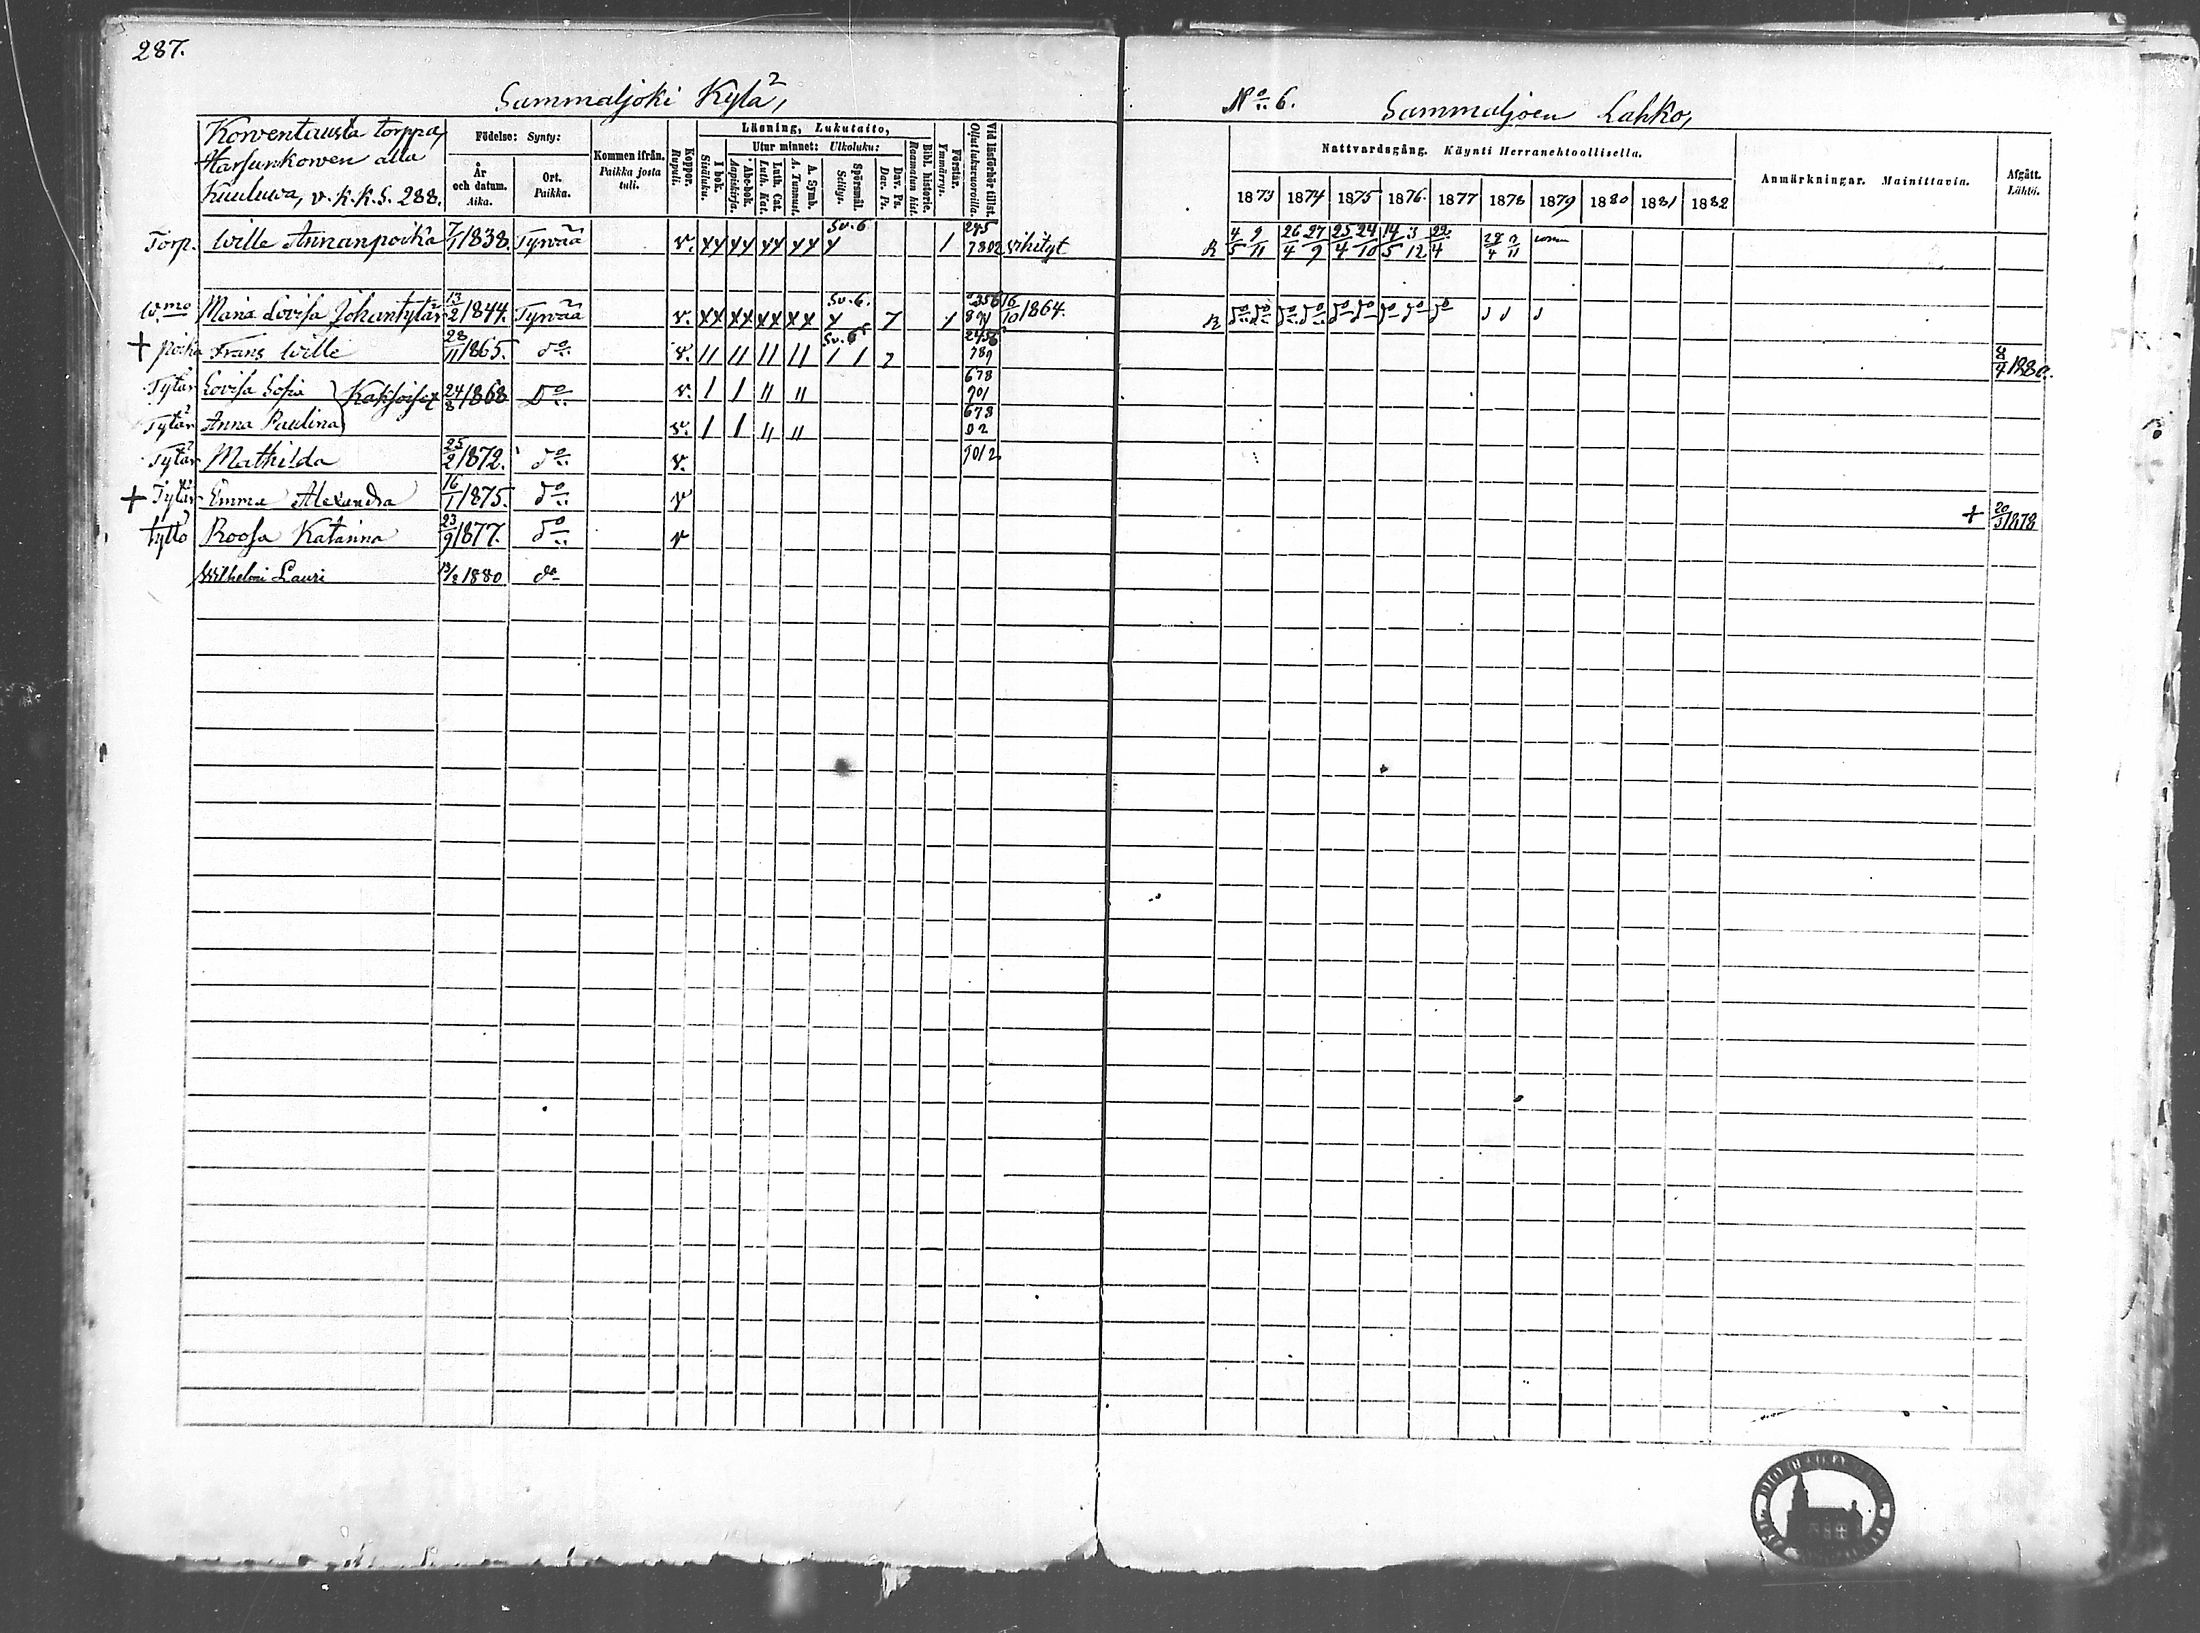 287.
Sammaljoki Kylä,
No 6.
Sammaljoen Lahko,
Korventausta torppa,
Harjunkorven alla
Kuuluva, v. k. k. S. 288.
Födelse: Synty:
År och datum. Aika.
Ort. Paikka.
Kommen ifrån. Paikka josta tuli.
Koppor. Rupuli.
Läsning, Lukutaito,
I bok. Sisäluku.
Utur minnet: Ulkoluku:
Abc-bok. Aapiskirja.
Luth. Cat. Luth. Kat.
A. Symb. A. Tunnust.
Spörsmål. Selitys.
Dav. Ps. Dav. Ps.
Bibl. historie. Raamatun hist.
Förstår. Ymmärrys.
Vid läsförhör tillst. Ollut lukuvuoroilla.
Nattvardsgång. Käynti Herranehtoollisella.
1873 1874 1875 1876. 1877 1878 1879 1880 1881 1882
Anmärkningar. Mainittavia.
Afgått. Lähtö.
Torp. Wille Annanpoika 7/1 1838. Tyrvää v. Sv. 6 7802 vihityt R 4/5 9/11 26/4 27/9 25/4 24/10 14/5 3/12 22/4
Maria Lovisa Johantytär 13/2 1844. Tyrvää v. Sv. 6. 7 16/10 1864. R
+ poika Frans Wille 28/11 1865. do v. Sv. 6 789 1880.
Tytär Lovisa Sofia Kaksoiset 24/8 1868 Do v. 678 901
Tytär Anna Paulina v. 678 92
Tytär Mathilda 25/2 1872. do v. 9012
+ Tytär Emma Alexandra 16/1 1875. do v + 1878
tyttö Roosa Katariina 23/9 1877. do v
Wilhelmi Lauri 13/2 1880. do